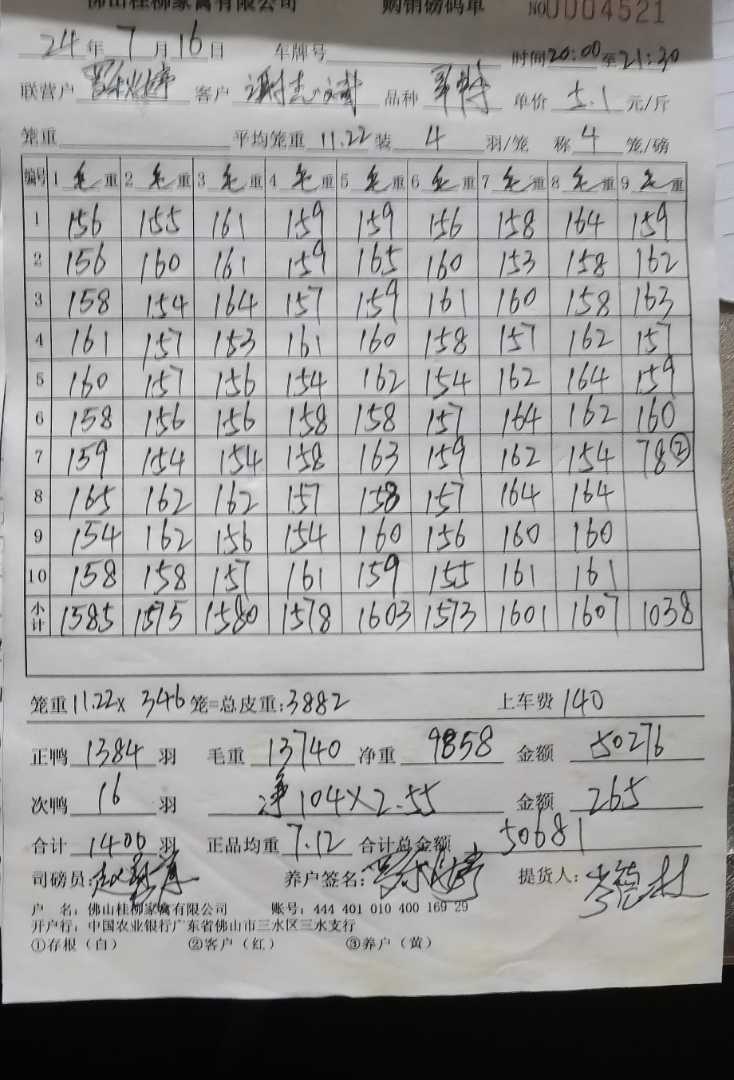 佛山桂柳家禽有限公司 购销磅码单 NO0004521
24年7月16日 车牌号 时间20:00至21:30
联营户 客户 谢志斌 品种 单价 5.1 元/斤
笼重 平均笼重 11.22 装 4 羽/笼 称 4 笼/磅
编号 1 毛重 2 毛重 3 毛重 4 毛重 5 毛重 6 毛重 7 毛重 8 毛重 9 毛重
1 156 155 161 159 159 156 158 164 159
2 156 160 161 159 165 160 153 158 162
3 158 154 164 157 159 161 160 158 163
4 161 157 153 161 160 158 157 162 157
5 160 157 156 154 162 154 162 164 159
6 158 156 156 158 158 157 164 162 160
7 159 154 154 158 163 159 162 154 78②
8 165 162 162 157 158 157 164 164
9 154 162 156 154 160 156 160 160
10 158 158 157 161 159 155 161 161
小计 1585 1575 1580 1578 1603 1573 1601 1607 1038
笼重 11.22× 346 笼=总皮重:3882 上车费 140
正鸭 1384 羽 毛重 13740 净重 9858 金额 50276
次鸭 16 羽 净104×2.55 金额 265
合计 1400 羽 正品均重 7.12 合计总金额 50681
司磅员: 养户签名: 提货人:
户 名:佛山桂柳家禽有限公司 账号:444 401 010 400 169 29
开户行:中国农业银行广东省佛山市三水区三水支行
①存根(白) ②客户(红) ③养户(黄)